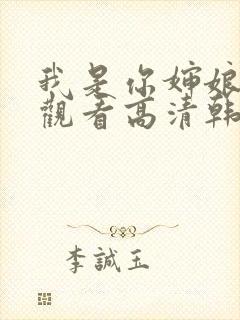 我是你婶娘
觀看高清韩
李誠玉